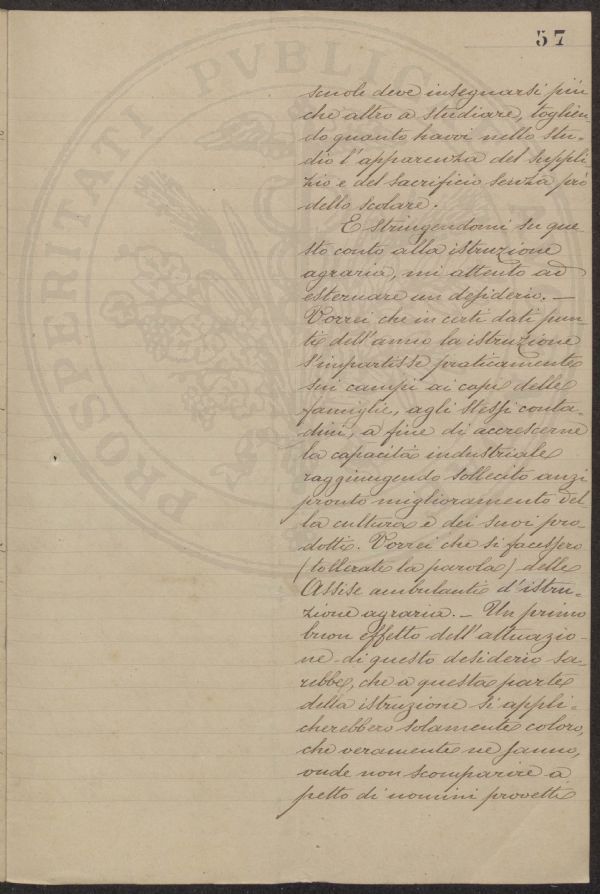 57
scuole deve insegnarsi più
che altro a studiare, toglien
do quanto havvi nello stu-
dio l'apparenza del suppli
zio e del sacrificio senza prò
dello scolare.
E stringendomi su que
sto conto alla istruzione
agraria, mi attento ad
esternare un desiderio. —
Vorrei che in certi dati pun
ti dell'anno la istruzione
s'impartisse praticamente
sui campi ai capi delle
famiglie, agli stessi conta-
dini, a fine di accrescerne
la capacità industriale
raggiungendo sollecito anzi
pronto miglioramento del
la cultura e dei suoi pro
dotti. Vorrei che si facessero
(tollerate la parola) delle
Assise ambulanti d'istru-
zione agraria. — Un primo
buon effetto dell'attuazio-
ne di questo desiderio sa-
rebbe, che a questa parte
della istruzione si appli-
cherebbero solamente coloro,
che veramente ne sanno,
onde non scomparire a
petto di uomini provetti
PROSPERITATI PVBLIC